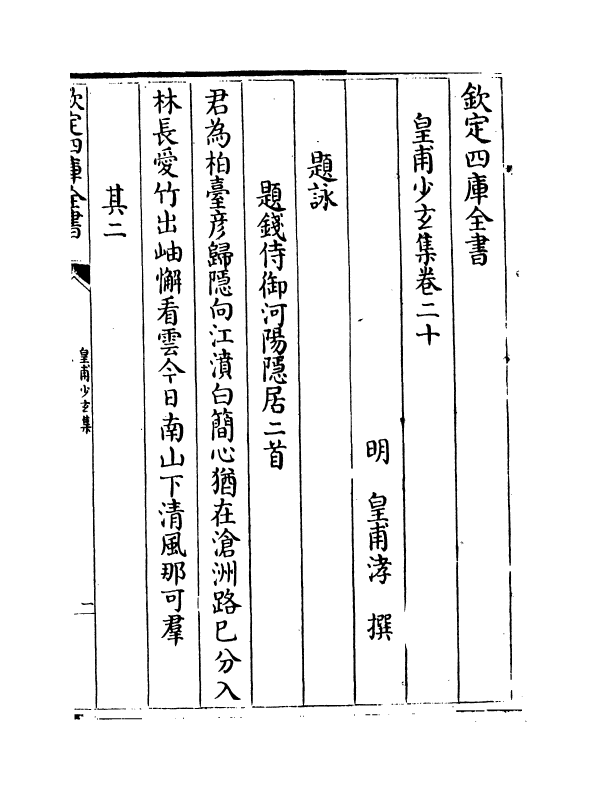 欽定四庫全書
皇甫少玄集卷二十
明 皇甫涍 撰
題詠
題錢侍御河陽隱居二首
君為柏臺彦歸隱向江濆白簡心猶在滄洲路已分入
林長愛竹出岫懈看雲今日南山下清風那可羣
其二
欽定四庫全書
皇甫少玄集
一